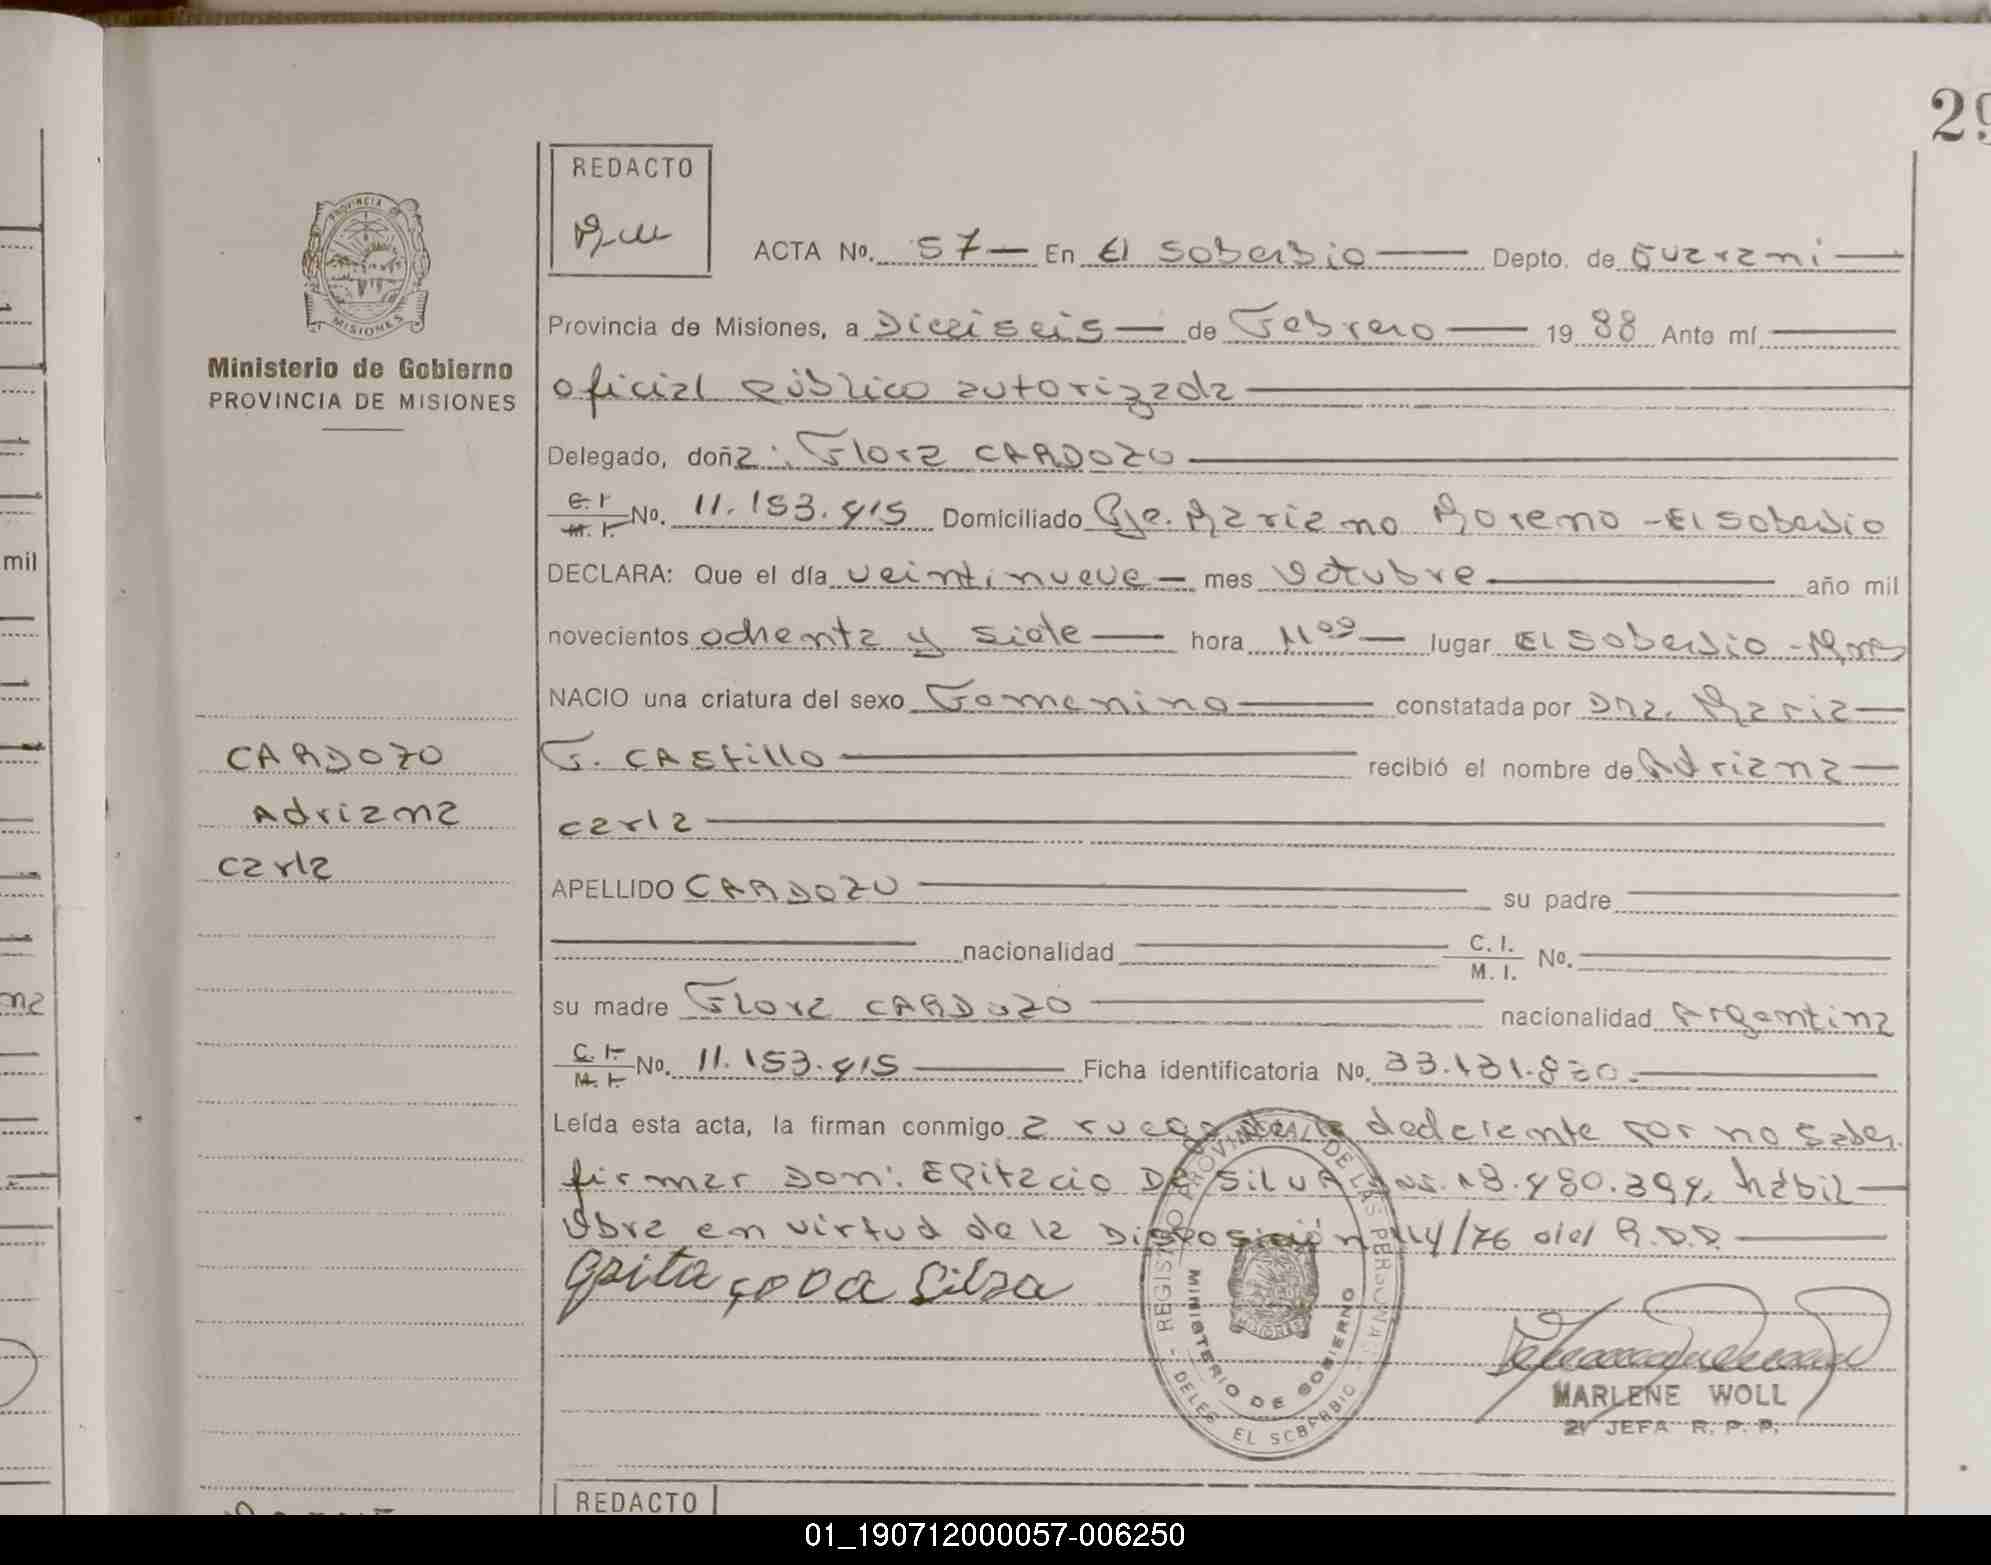 29
REDACTO
ACTA Nº. 57 — En El Soberbio — Depto. de Guarani —
PROVINCIA DE
MISIONES
Provincia de Misiones, a Dieciseis — de Febrero — 19 88 Ante mí —
Ministerio de Gobierno
PROVINCIA DE MISIONES
oficial público autorizada —
Delegado, doña: Flora CARDOZO —
C. I.
M. I. No. 11.153.415 Domiciliado Pje. Mariano Moreno - El Soberbio
DECLARA: Que el día veintinueve — mes Octubre — año mil
mil
novecientos ochenta y siete — hora 11⁰⁰ — lugar El Soberbio - Mnes
NACIO una criatura del sexo Femenino — constatada por Dra. Maria —
CARDOZO
F. CAStillo — recibió el nombre de Adriana —
Adriana
Carla —
Carla
APELLIDO CARDOZO — su padre —
— nacionalidad — C. I.
M. I. Nº. —
na
su madre Flora CARDOZO — nacionalidad Argentina
C. I.
M. I. No. 11.153.415 — Ficha identificatoria No. 33.131.830. —
Leída esta acta, la firman conmigo a ruego de la declarante por no saber
firmar Don: EPitacio DA SilvA 18.480.394, hábil —
Obra en virtud de la Disposición 114/76 del R.D.D. —
REGISTRO PROVINCIAL DE LAS PERSONAS
MINISTERIO DE GOBIERNO
MISIONES
- DELEG. EL SOBERBIO -
MARLENE WOLL
2ª JEFA R. P. P.
REDACTO
01_190712000057-006250